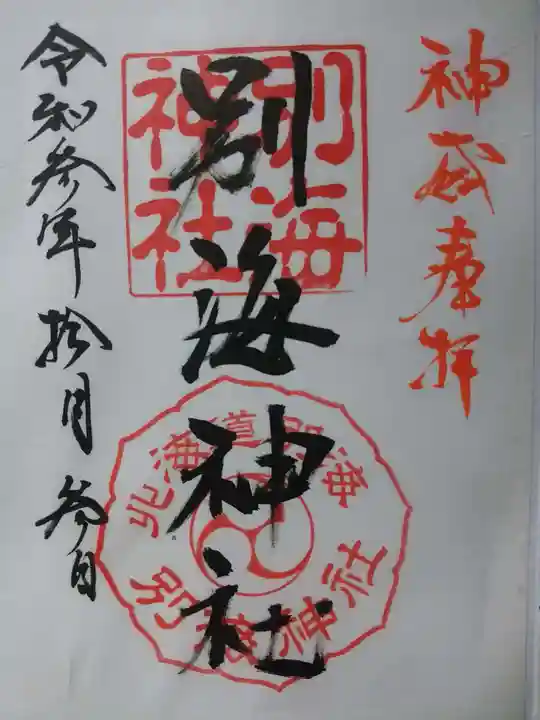 神威奉拝
別海神社
別海
神社
北海道別海
別海神社
令和参年拾月参日